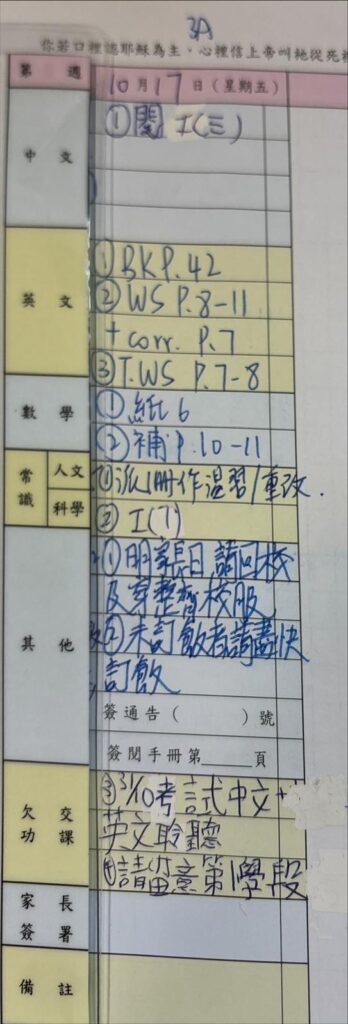 3A
你若口裡認耶穌為主，心裡信上帝叫祂從死裡
第 週
10月17日(星期五)
中文
①閱 I(三)
英文
①BK P.42
②WS P.8-11
+corr. P.7
③T.WS P.7-8
數學
①紙6
②補P.10-11
常識
人文
①派1冊作温習/重改.
科學
② I(1)
其他
①明家長日 請回校
及穿整齊校服
②未訂飯者請盡快
訂飯
簽通告( )號
簽閱手冊第____頁
欠交功課
③31/10考試中文+
英文聆聽
④請留意第1學段
家長簽署
備註